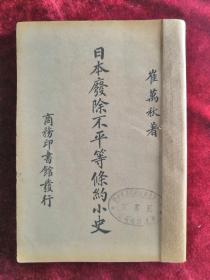 崔萬秋著
日本廢除不平等條約小史
商務印書館發行